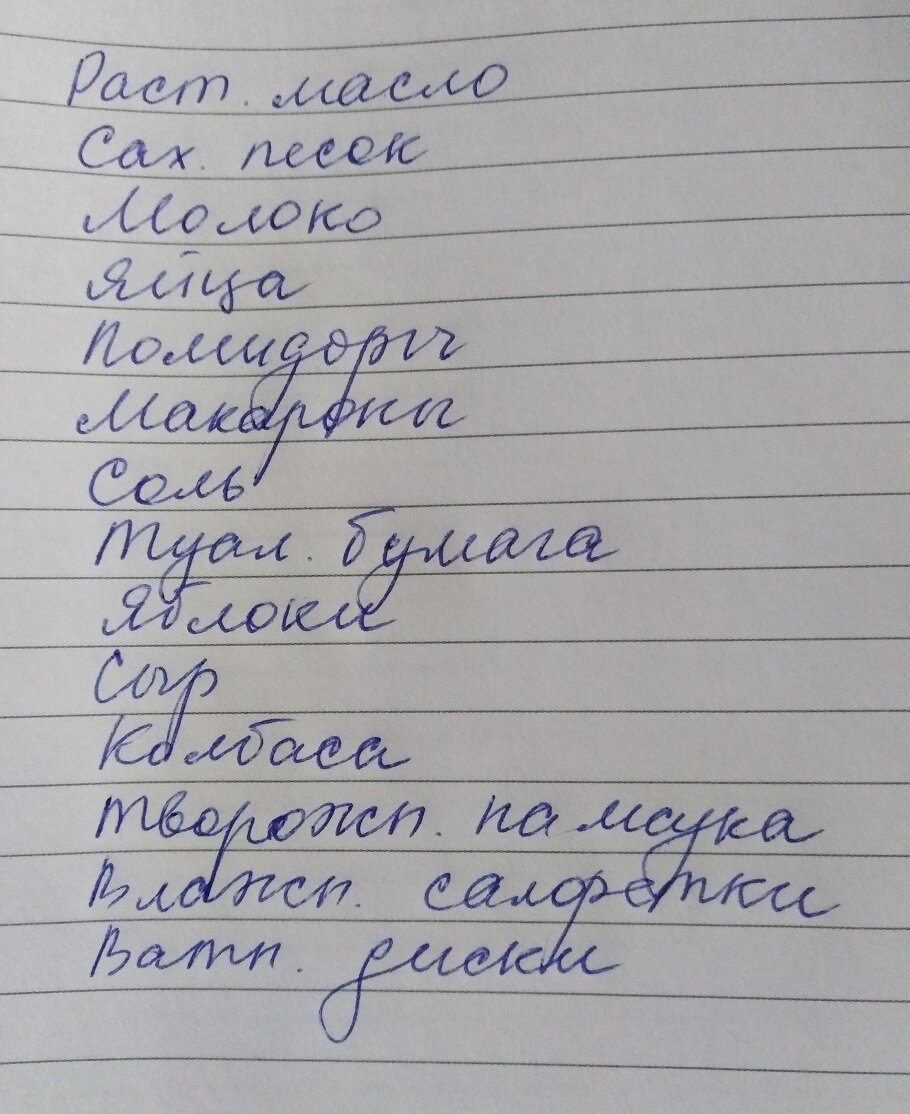 Раст. масло
Сах. песок
Молоко
Яйца
Помидоры
Макароны
Соль
Туал. бумага
Яблоки
Сыр
Колбаса
Творожн.
Влажн. салфетки
Ватн. диски